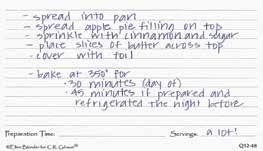 - spread into pan
- spread apple pie filling on top
- sprinkle with cinnamon and sugar
- place slices of butter across top
- cover with foil
- bake at 350° for
· 30 minutes (day of)
· 45 minutes if prepared and
refrigerated the night before
Preparation Time: Servings: a lot!
©Ellen Blonder for C.R. Gibson® Q12-48